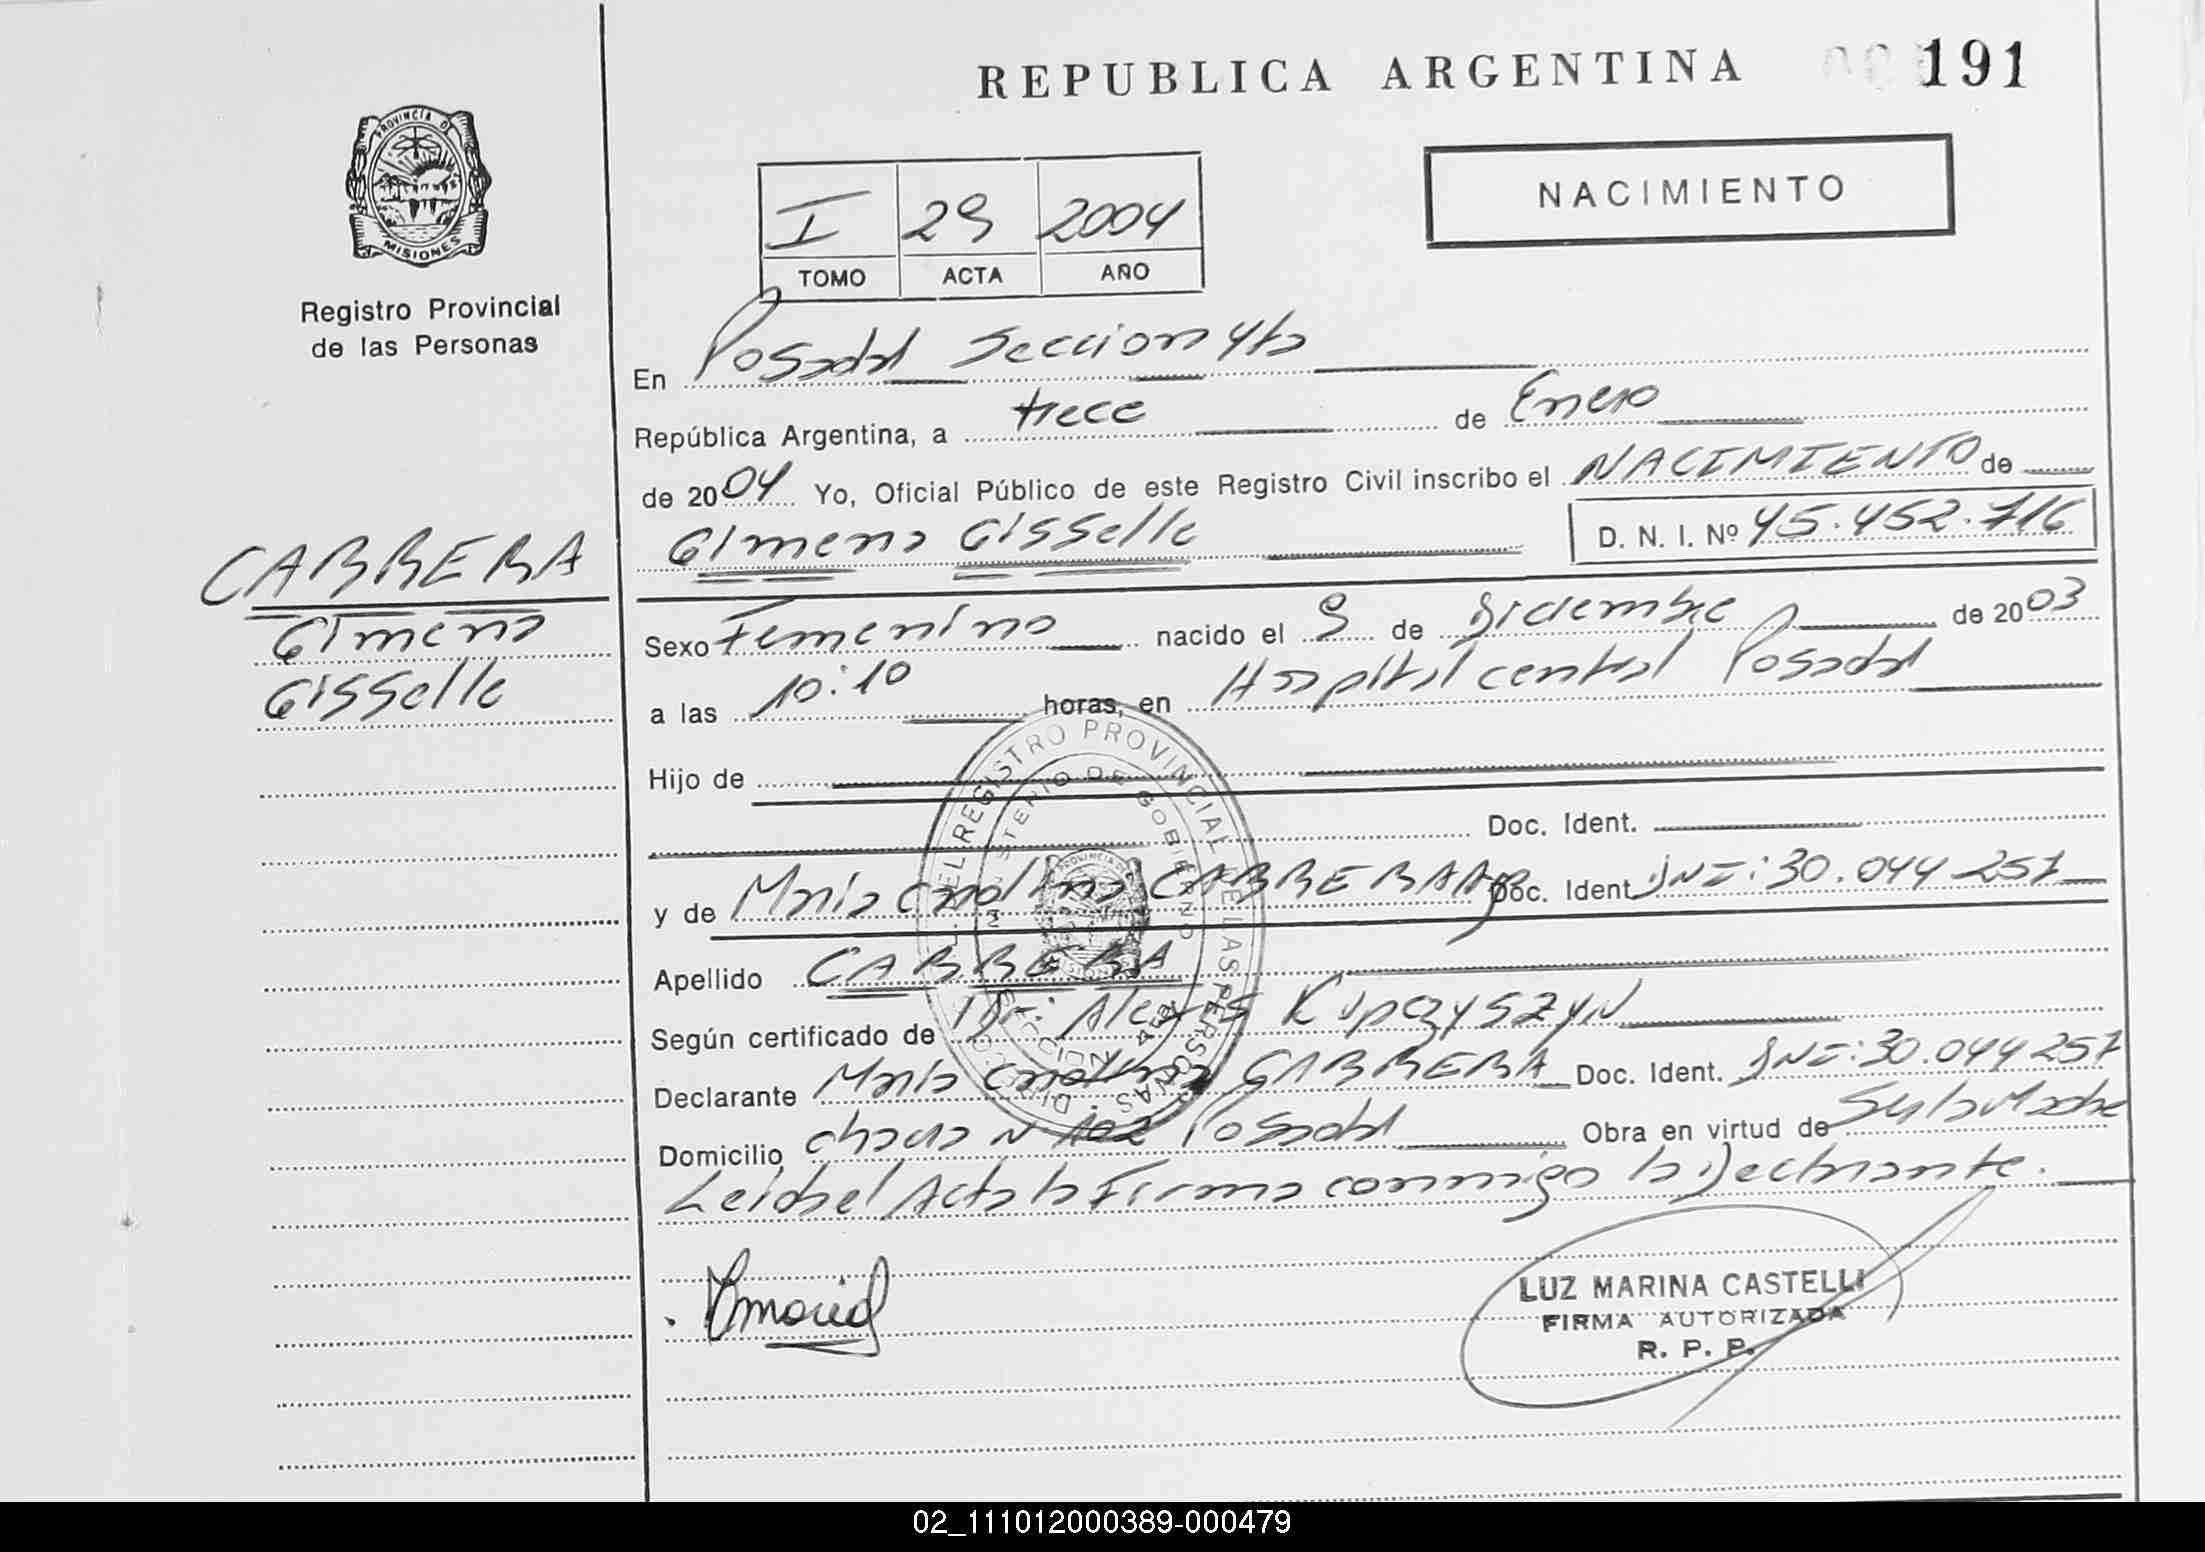 REPUBLICA ARGENTINA 191
PROVINCIA DE
MISIONES
Registro Provincial
de las Personas
NACIMIENTO
I 29 2004
TOMO ACTA AÑO
En Posadas Seccion 4ta
República Argentina, a trece de Enero
de 2004 Yo, Oficial Público de este Registro Civil inscribo el NACIMIENTO de
Gimena Gisselle D. N. I. Nº 45.452.716
CABRERA
Gimena
Gisselle
Sexo Femenino nacido el 9 de Diciembre de 2003
a las 10:10 horas, en Hospital central Posadas
Hijo de
Doc. Ident.
y de Maria Carolina CABRERA Doc. Ident. DNI: 30.044 257
Apellido CABRERA
Según certificado de Dr: Alexis Kupczyszyn
Declarante Maria Carolina CABRERA Doc. Ident. DNI: 30.044 257
Domicilio chacra N 102 Posadas Obra en virtud de Ser la Madre
Leida el Acta la Firma conmigo la Declarante.
LUZ MARINA CASTELLI
FIRMA AUTORIZADA
R. P. P.
02_111012000389-000479